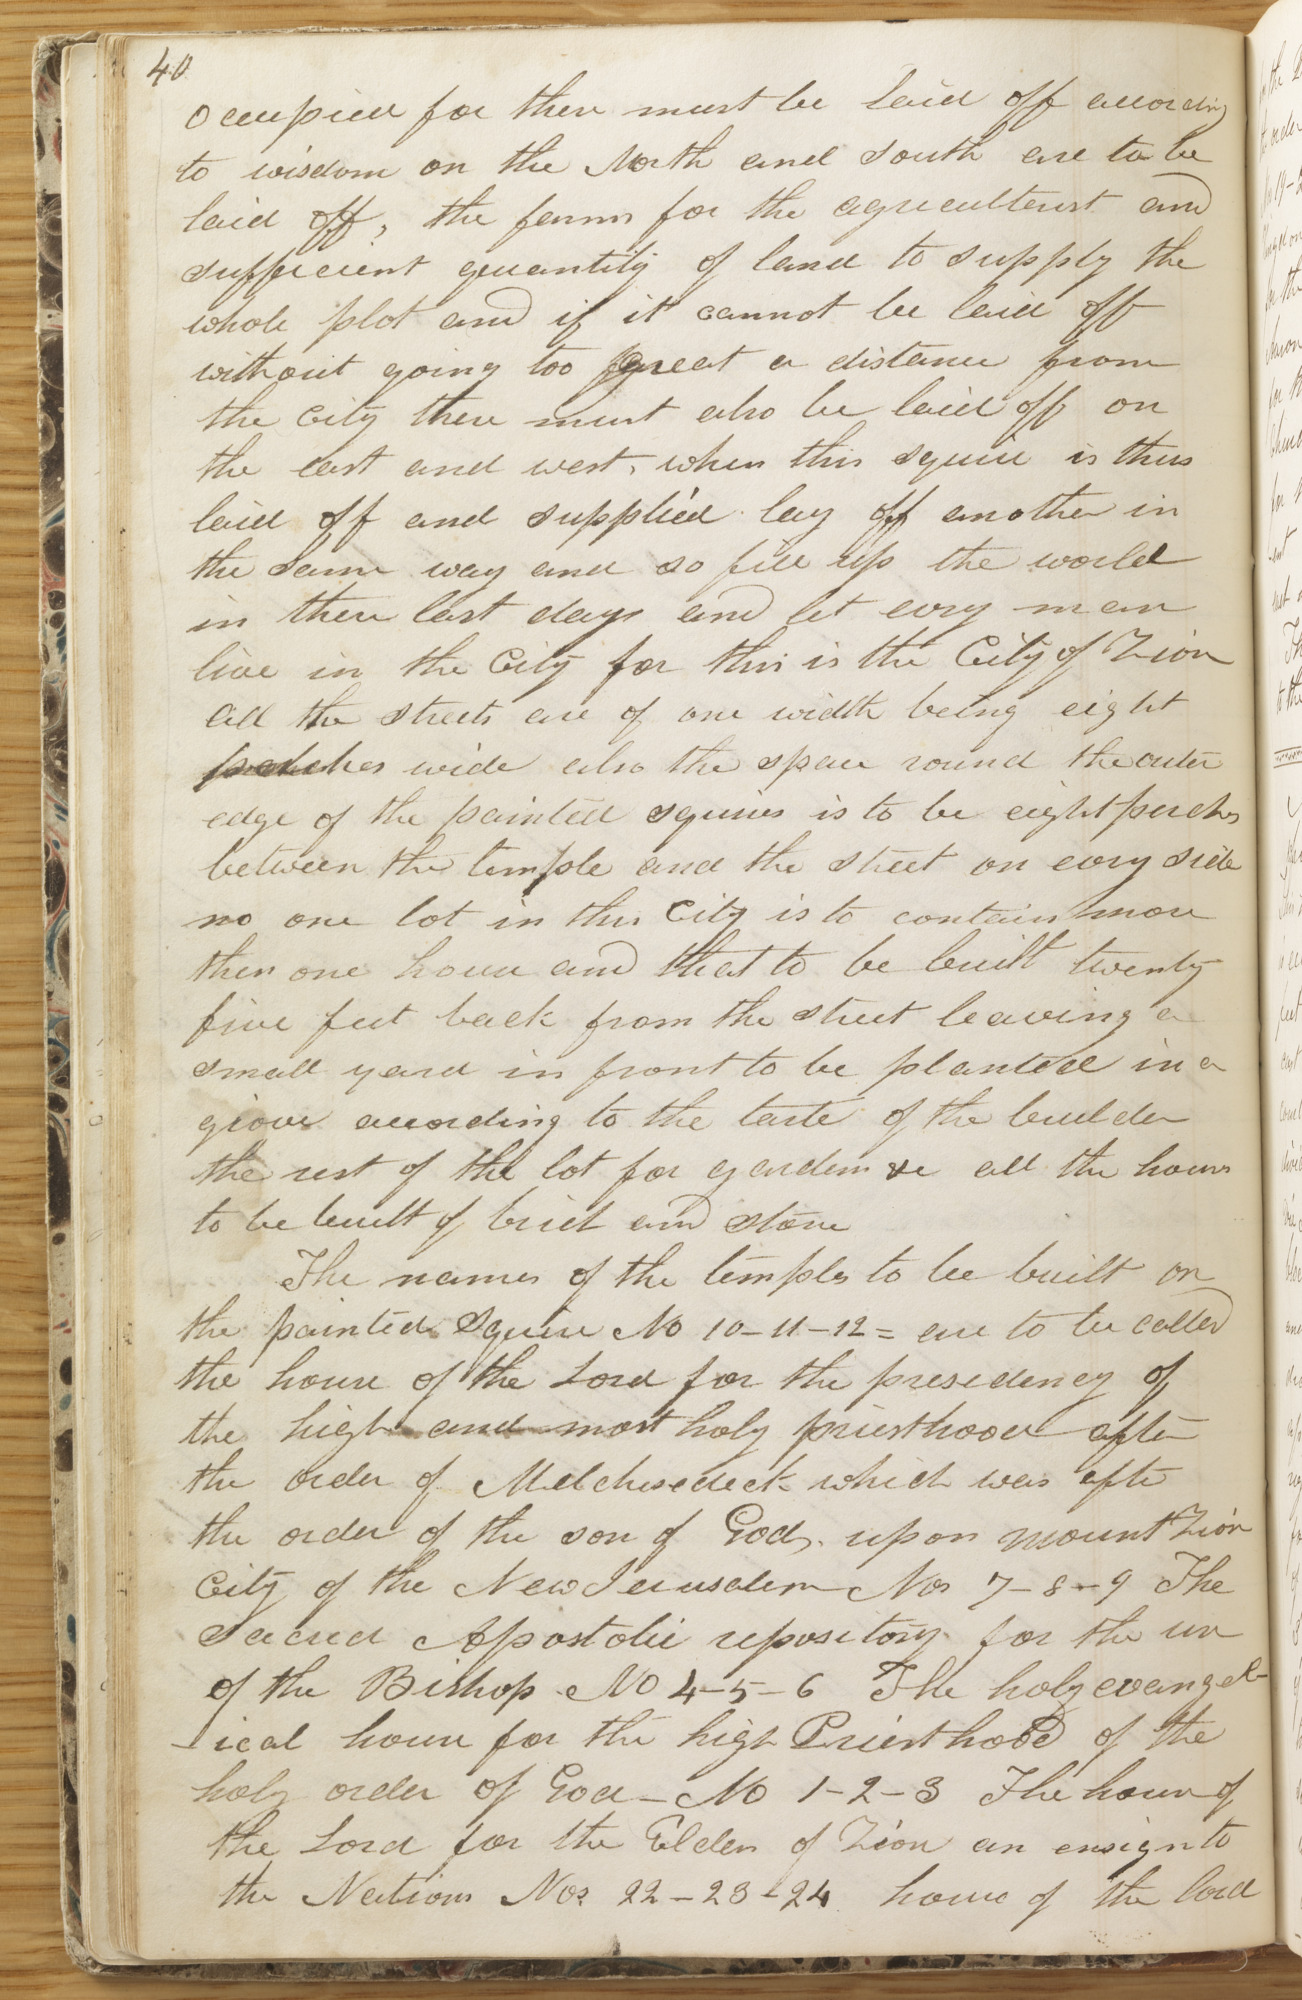 40
occupied for there must be laid off according
to wisdom on the North and south are to be
laid off, the farms for the agriculturist and
sufficient quantity of land to supply the
whole plot and if it cannot be laid off
without going too great a distance from
the City there must also be laid off on
the east and west, when this square is thus
laid off and supplied lay off another in
the same way and so fill up the world
in these last days and let evry man
live in the City for this is the City of Zion
all the streets are of one width being eight
perches wide also the space round the outer
edge of the painted squares is to be eight perches
between the temple and the street on evry side
no one lot in this City is to contain more
then one house and that to be built twenty
five feet back from the street leaving a
small yard in front to be planted in a
grove according to the taste of the builder
the rest of the lot for gardens &c all the houses
to be built of brick and stone
The names of the temples to be built on
the painted Square No 10-11-12= are to be called
the house of the Lord for the presidency of
the high and most holy priesthood after
the order of Melchesedeck which was after
the order of the son of God, upon mount Zion
City of the New Jerusalem Nos 7-8-9 The
Sacred Apostolic repository for the use
of the Bishop No 4-5-6 The holy evangel-
-ical house for the high Priesthood of the
holy order of God- No 1-2-3 The house of
the Lord for the Elders of Zion an ensign to
the Nations Nos 22-23-24 house of the Lord